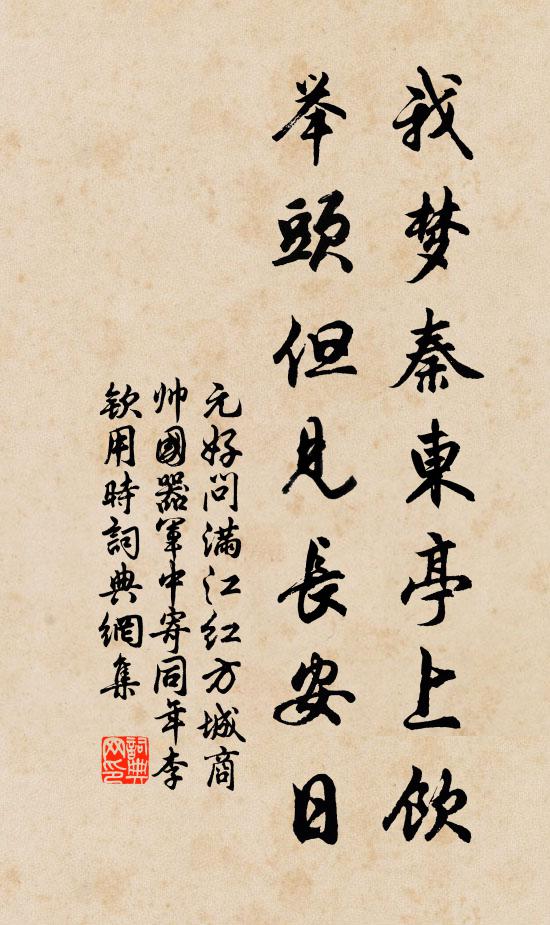 我梦秦東亭上飲
举頭但見長安日
元好问满江红方城商
帅國器軍中寄同年李
钦用時詞典網集
詞典网印